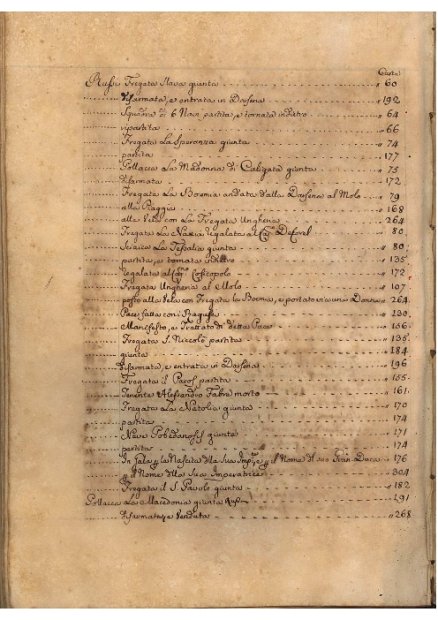 Carta
Russi Fregata Slava giunta " 60
disarmata, e entrata in Darsena " 192
Squadra di 6 Navi partita, e tornata indietro " 64
ripartita " 66
Fregata La Speranza giunta " 74
partita " 177
Pollacca La Madonna di giunta " 75
disarmata " 172
Fregata La Boemia andata dalla Darsena al Molo " 79
alla Piaggia " 168
alla Vela con La Fregata Ungheria " 264
Fregata La Naxia regalata al 80
La Tessalia giunta " 80
partita, e tornata indietro " 135
regalata al " 172
Fregata Ungheria al Molo " 107
posto alla Vela con Fregata la Boemia, e " 264
Pace fatta con i " 130
Manifesto, e Trattato di detta Pace " 136
Fregata S. Niccolò partita " 135
giunta " 184
disarmata, e entrata in Darsena " 196
Fregata il Paros partita " 155
Tenente Alessandro morto " 161
Fregata La Natolia giunta " 170
partita " 174
Nave giunta " 171
partita " 174
In gala la Nascita della sua e il Nome del suo Gran Duca " 176
Nome della sua Imperatrice " 304
Fregata il S. Paolo giunta " 182
Pollacca La Macedonia giunta " 191
disarmata, e venduta " 268